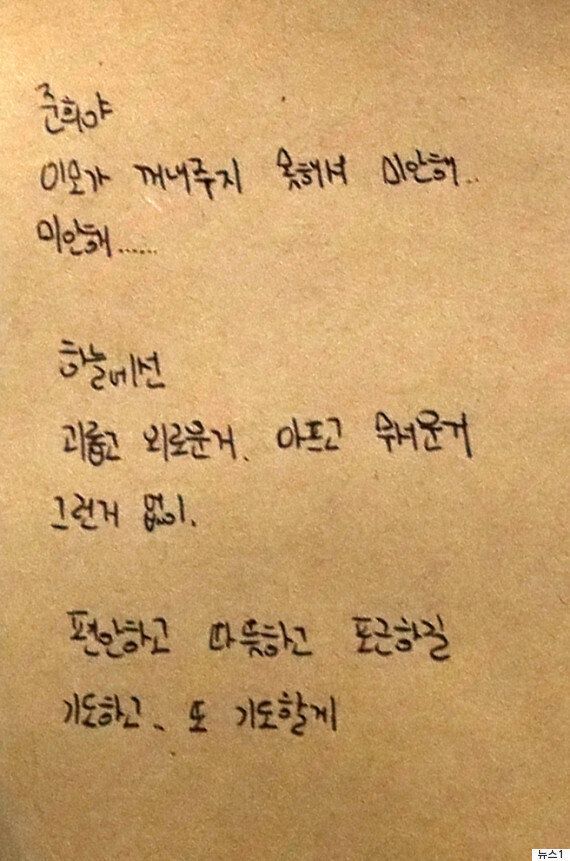 준희야
이모가 꺼내주지 못해서 미안해..
미안해......
하늘에선
괴롭고 외로운거, 아프고 무서운거
그런거 없이,
편안하고 따뜻하고 포근하길
기도하고, 또 기도할게
뉴스1